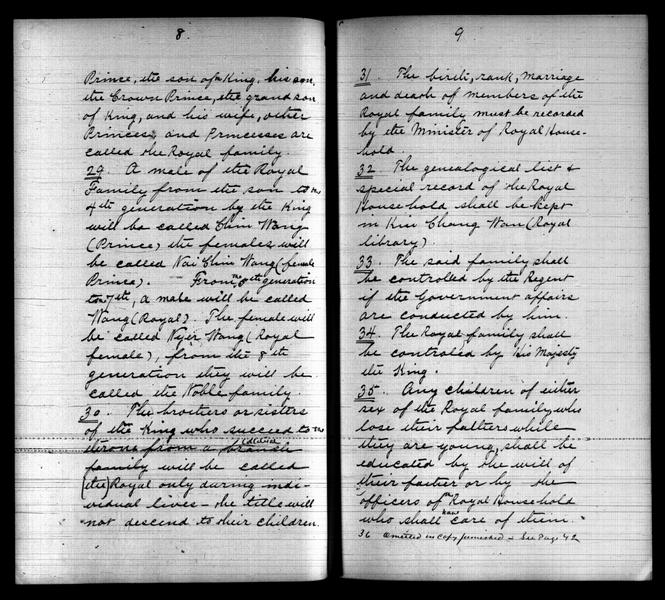 8.
Prince, the son of the King, his son,
the Crown Prince, the grand son
of King, and his wife, other
Princes, and Princesses are
called the Royal family.
29. A male of the Royal
Family from the son to the
4th generation by the King
will be called Chin Wang
(Prince), the females will
be called Nai Chin Wang (female
Prince). From the 5th generation
to 7th, a male will be called
Wang (Royal). The female will
be called Wang (Royal
female), from the 8th
generation they will be
called the Noble family.
30. The brothers or sisters
of the King who succeed to the
throne from a branch
family will be called
(the) Royal only during indi-
vidual lives - the title will
not descend to their children.
9.
31. The birth, rank, marriage
and death of members of the
Royal family must be recorded
by the Minister of Royal House-
hold.
32. The genealogical list &
special record of the Royal
Household shall be kept
in Kiu Chang Wan (Royal
library).
33. The said family shall
be controlled by the Regent
if the Government affairs
are conducted by him.
34. The Royal family shall
be controled by His Majesty
the King.
35. Any children of either
sex of the Royal family, who
lose their fathers while
they are young, shall be
educated by the will of
their father or by the
officers of the Royal Household
who shall have care of them.
36 omitted in copy furnished - See Page 42